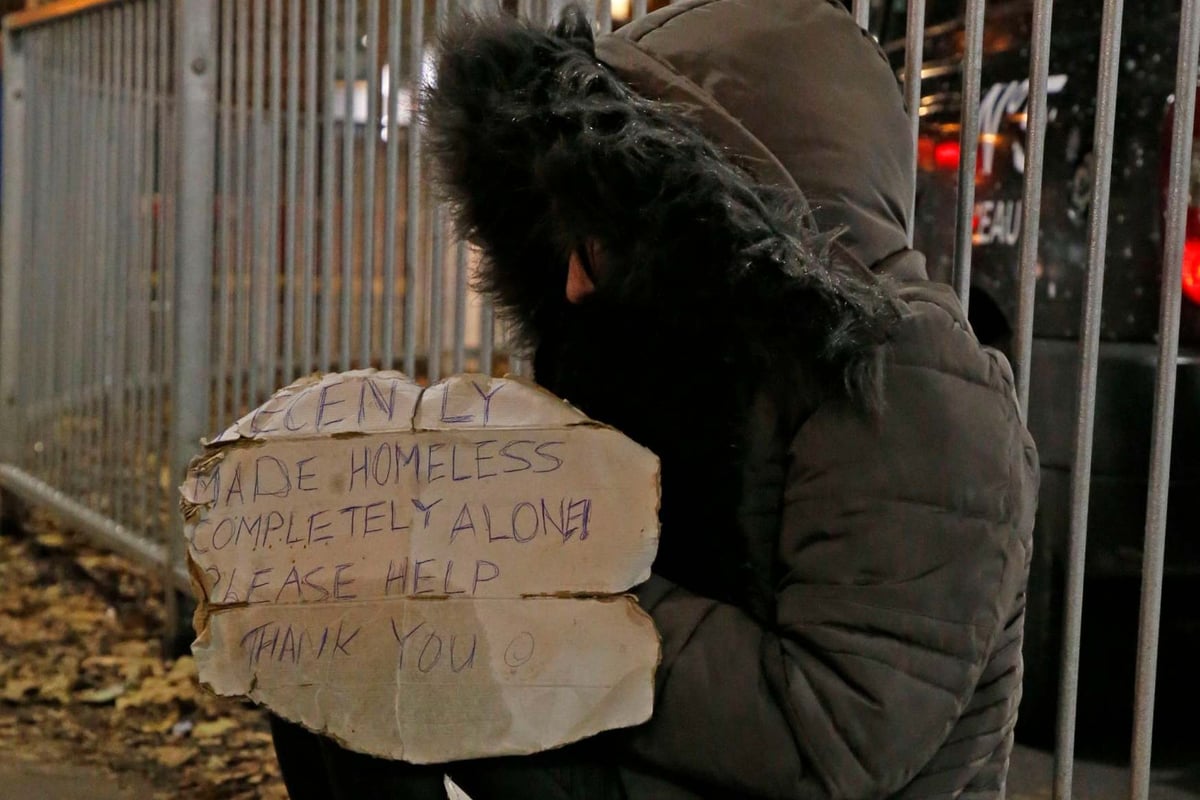 RECENTLY
MADE HOMELESS
COMPLETELY ALONE!
PLEASE HELP
THANK YOU
EAU